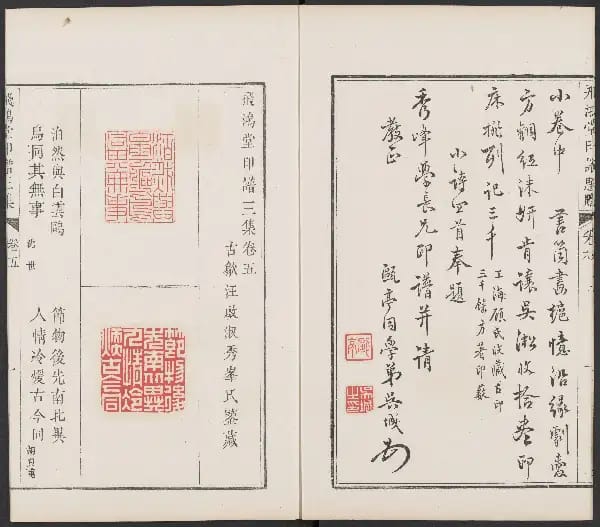 小卷中
憶沿緣劇愛
方銅紅沫妍肯讓吳淞收拾盡印
床 記三千
上海顧氏收藏古印
三千餘方著印藪
小詩四首奉題
秀峰學長兄印譜并請
教正
甌亭同學弟吳城
飛鴻堂印譜三集卷五
古歙汪啟淑秀峯氏鑒藏
泊然與白雲鷗
鳥同其無事
沈世
節物後先南北異
人情冷煖古今同
飛鴻堂印譜三集
卷之五